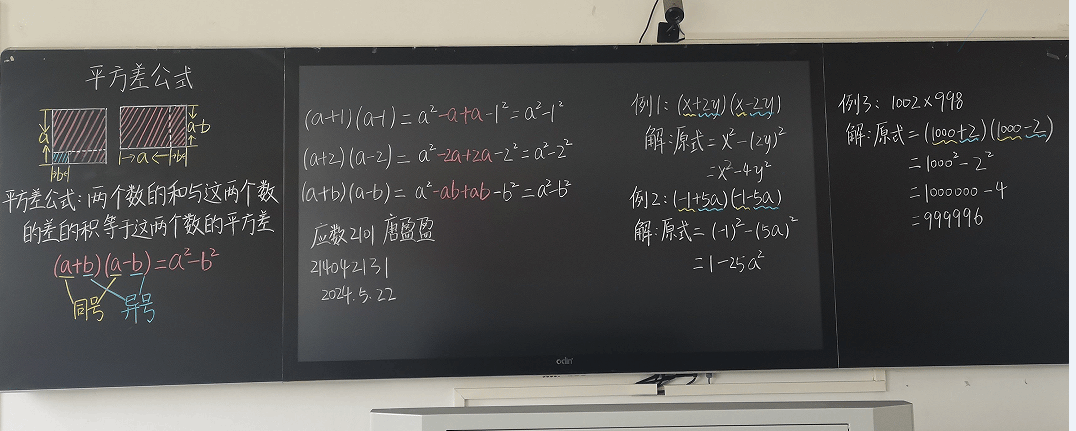 平方差公式
a
b
a-b
a
b
平方差公式:两个数的和与这两个数
的差的积等于这两个数的平方差
(a+b)(a-b)=a²-b²
同号 异号
(a+1)(a-1)=a²-a+a-1²=a²-1²
(a+2)(a-2)=a²-2a+2a-2²=a²-2²
(a+b)(a-b)=a²-ab+ab-b²=a²-b²
应数2101 唐盈盈
214042131
2024.5.22
例1:(x+2y)(x-2y)
解:原式=x²-(2y)²
=x²-4y²
例2:(-1+5a)(-1-5a)
解:原式=(-1)²-(5a)²
=1-25a²
例3:1002×998
解:原式=(1000+2)(1000-2)
=1000²-2²
=1000000-4
=999996